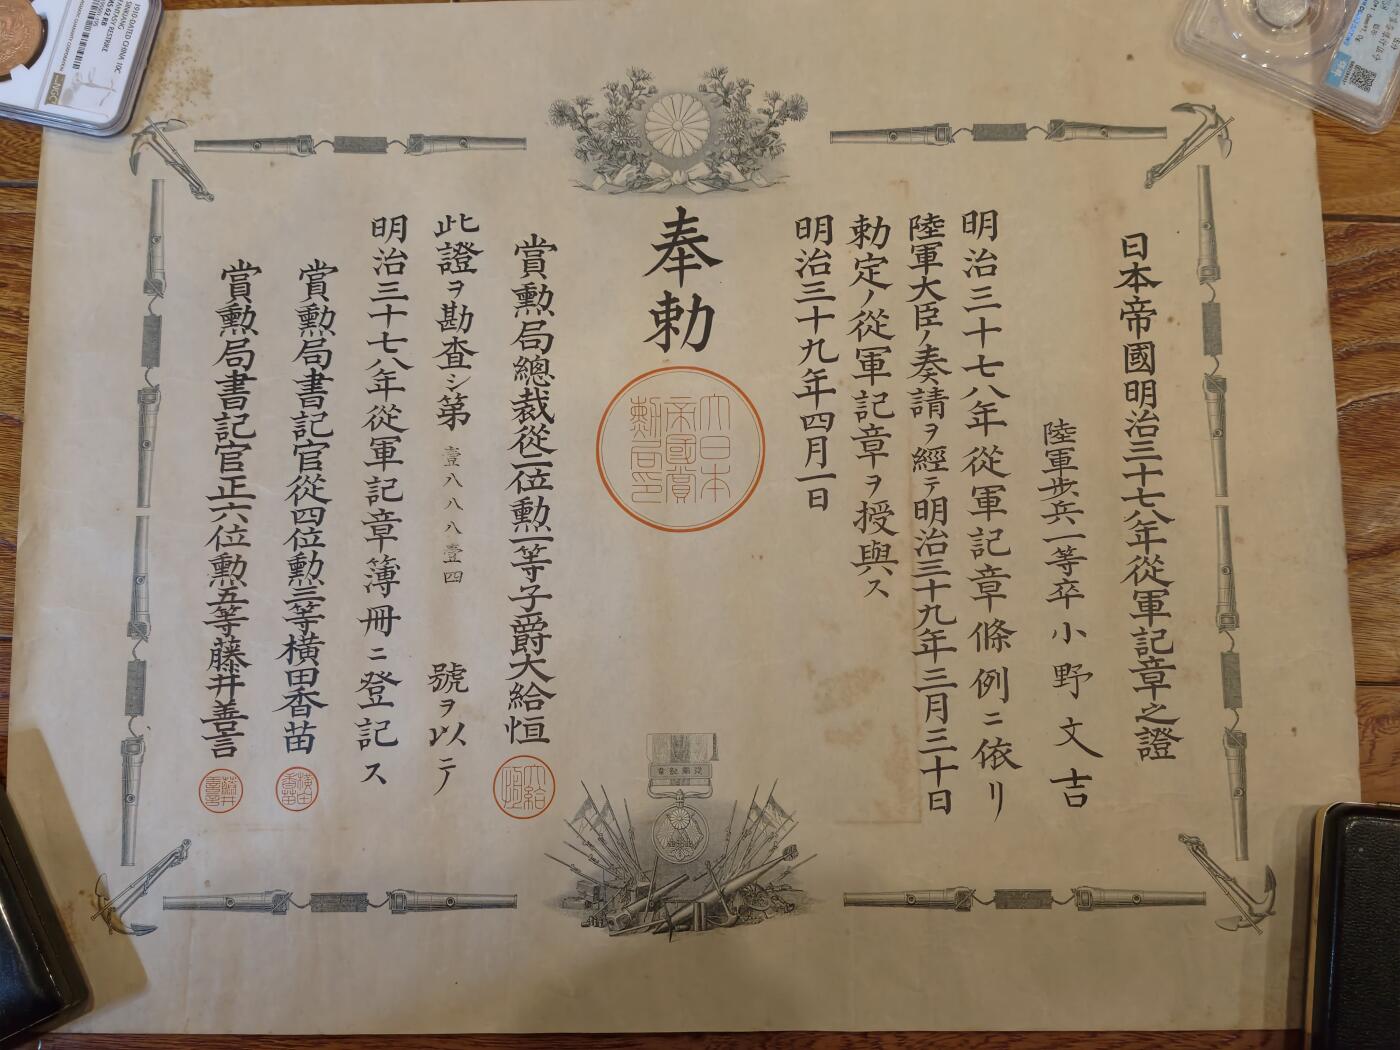 日本帝國明治三十七八年從軍記章之證
陸軍步兵一等卒小野文吉
明治三十七八年從軍記章條例ニ依リ
陸軍大臣ノ奏請ヲ經テ明治三十九年三月三十日
勅定ノ從軍記章ヲ授與ス
明治三十九年四月一日
奉勅
大日本
帝國賞
勳局印
賞勲局總裁從二位勲一等子爵大給恒
大給
恒
此證ヲ勘査シ第壹八八八壹四號ヲ以テ
明治三十七八年從軍記章簿冊ニ登記ス
賞勲局書記官從四位勲三等橫田香苗
橫田
香苗
賞勲局書記官正六位勲五等藤井善言
藤井
善言
從軍記章
1910-DATED CHINA 10C
SINKIANG
FANTASY RESTRIKE
MS 62 RB
NGC